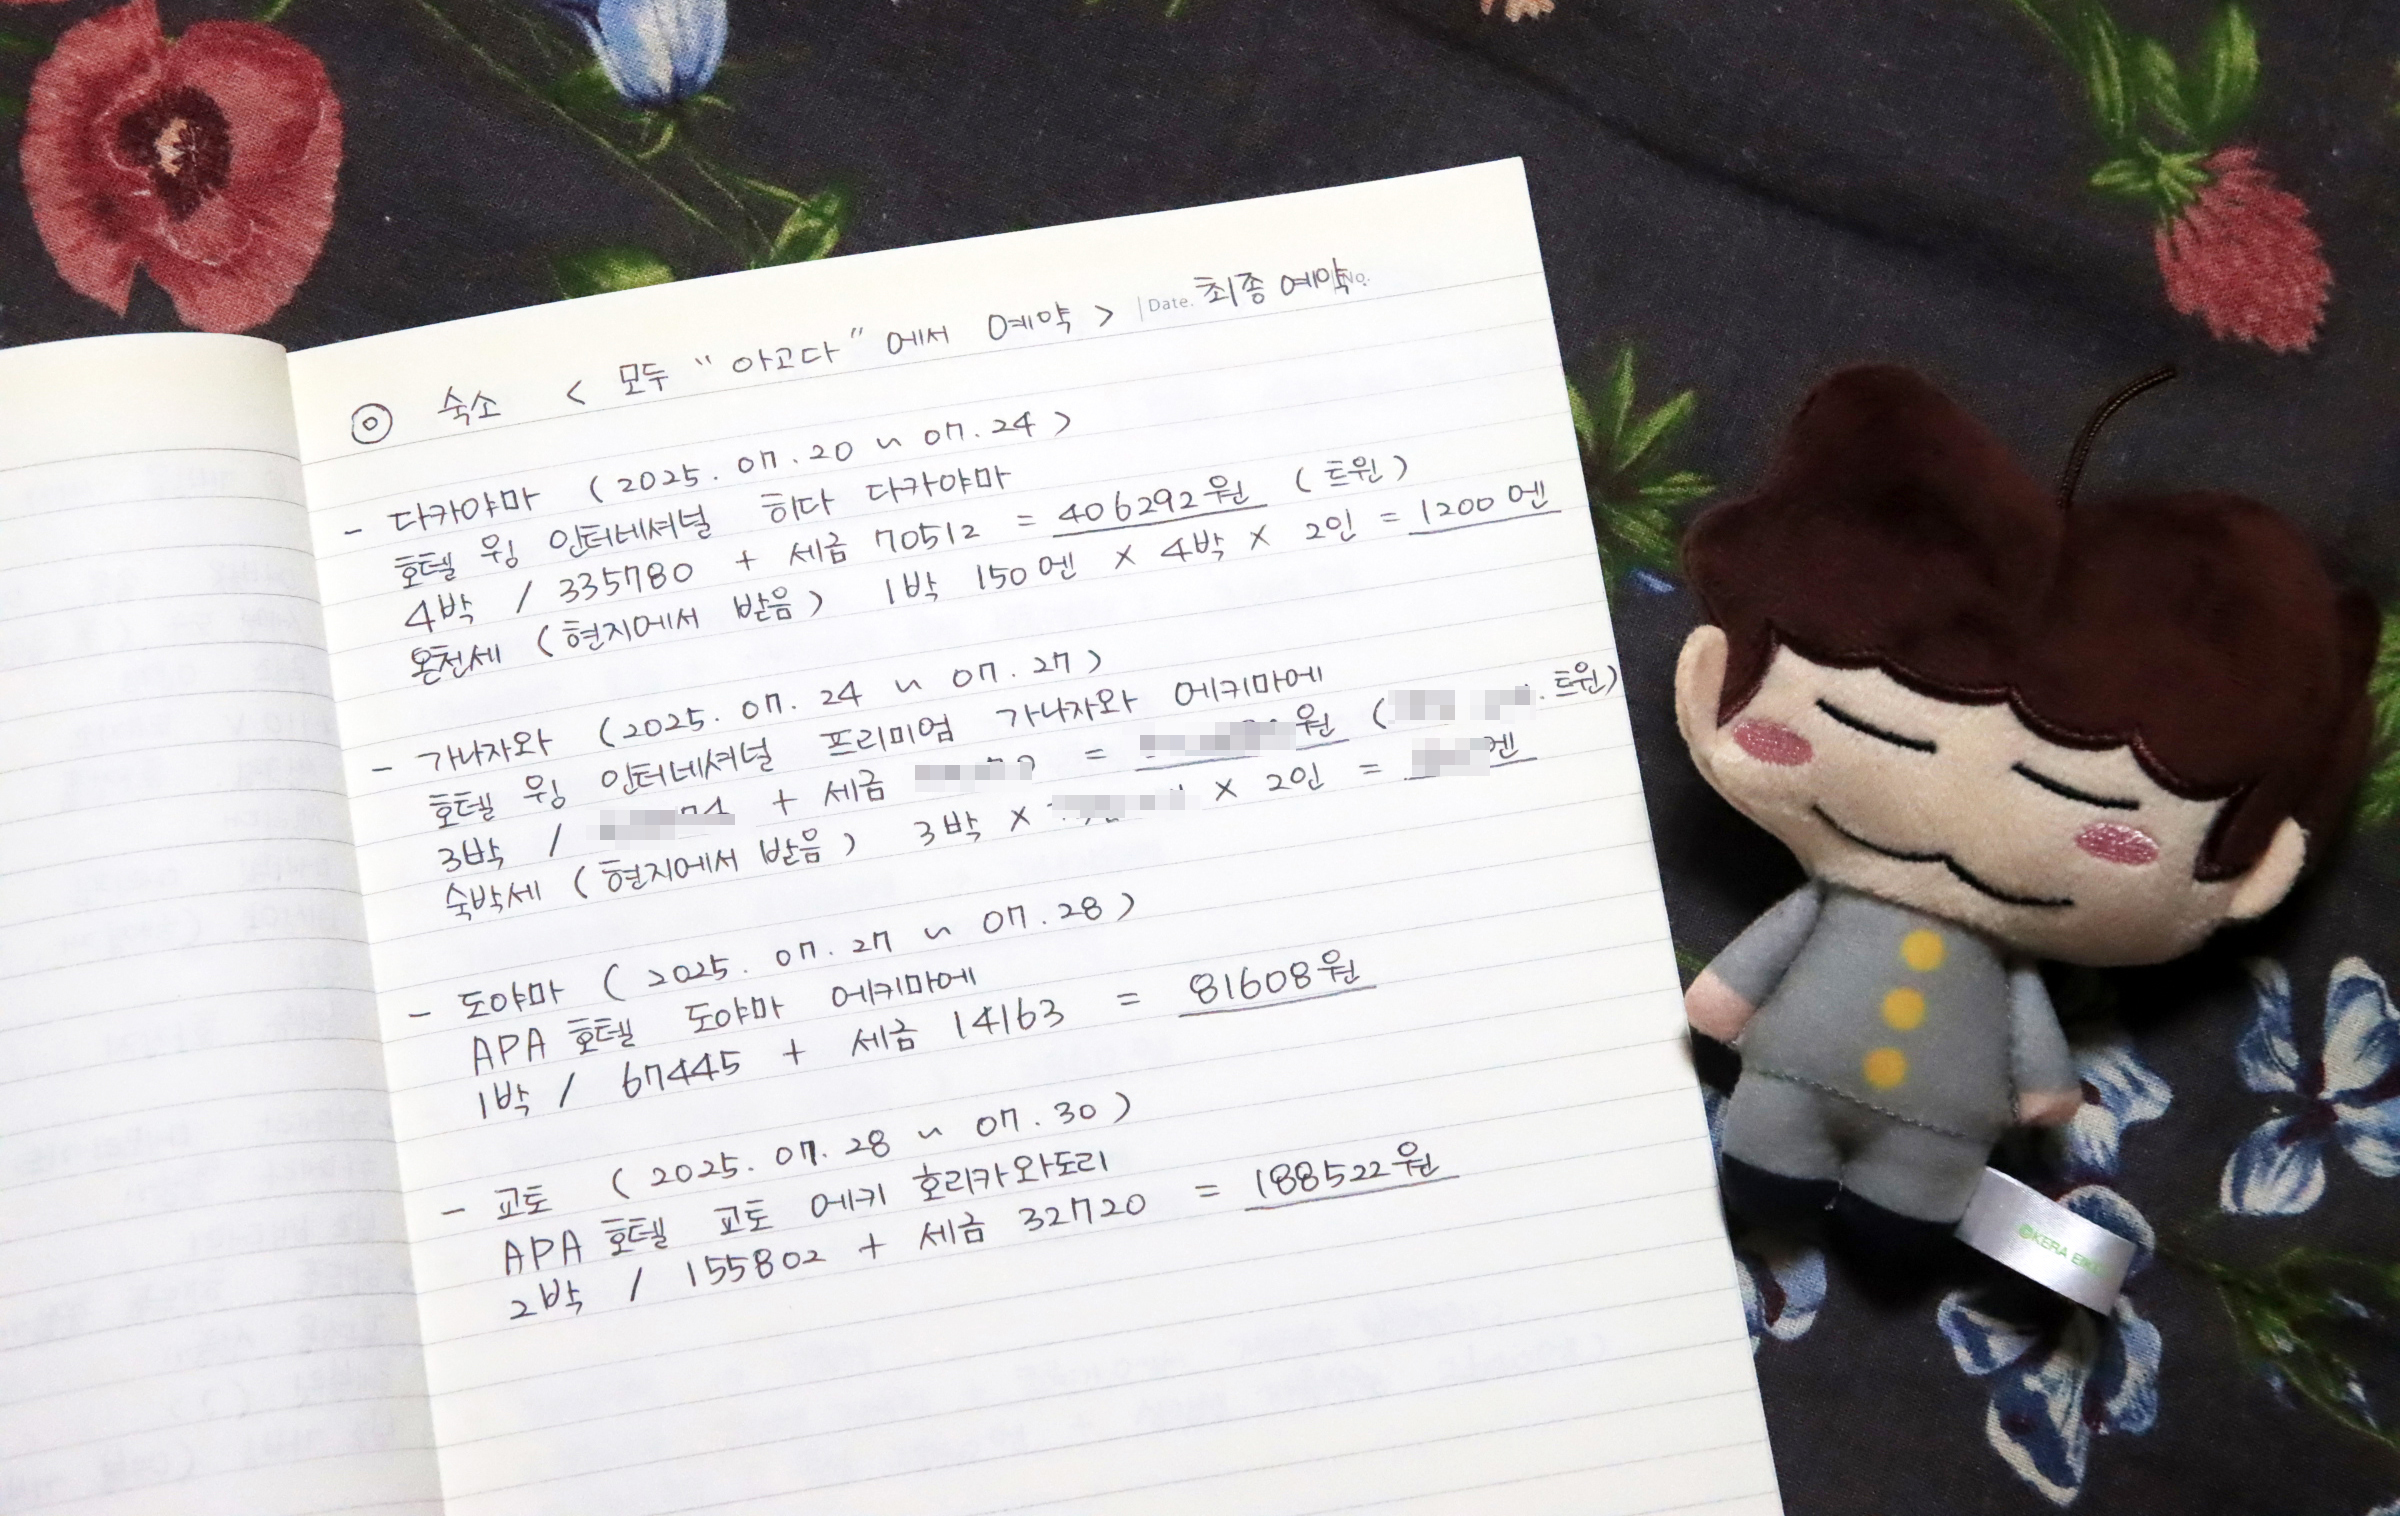 Date. 최종 예약 No.
◎ 숙소 < 모두 "아고다" 에서 예약 >
- 다카야마 (2025. 07. 20 ~ 07. 24)
호텔 윙 인터네셔널 히다 다카야마
4박 / 335780 + 세금 70512 = 406292원 (트윈)
온천세 (현지에서 받음) 1박 150엔 × 4박 × 2인 = 1200엔
- 가나자와 (2025. 07. 24 ~ 07. 27)
호텔 윙 인터네셔널 프리미엄 가나자와 에키마에
3박 / + 세금 = 원 ( . 트윈)
숙박세 (현지에서 받음) 3박 × × 2인 = 엔
- 도야마 (2025. 07. 27 ~ 07. 28)
APA 호텔 도야마 에키마에
1박 / 67445 + 세금 14163 = 81608원
- 교토 (2025. 07. 28 ~ 07. 30)
APA 호텔 교토 에키 호리카와도리
2박 / 155802 + 세금 32720 = 188522원
©KERA